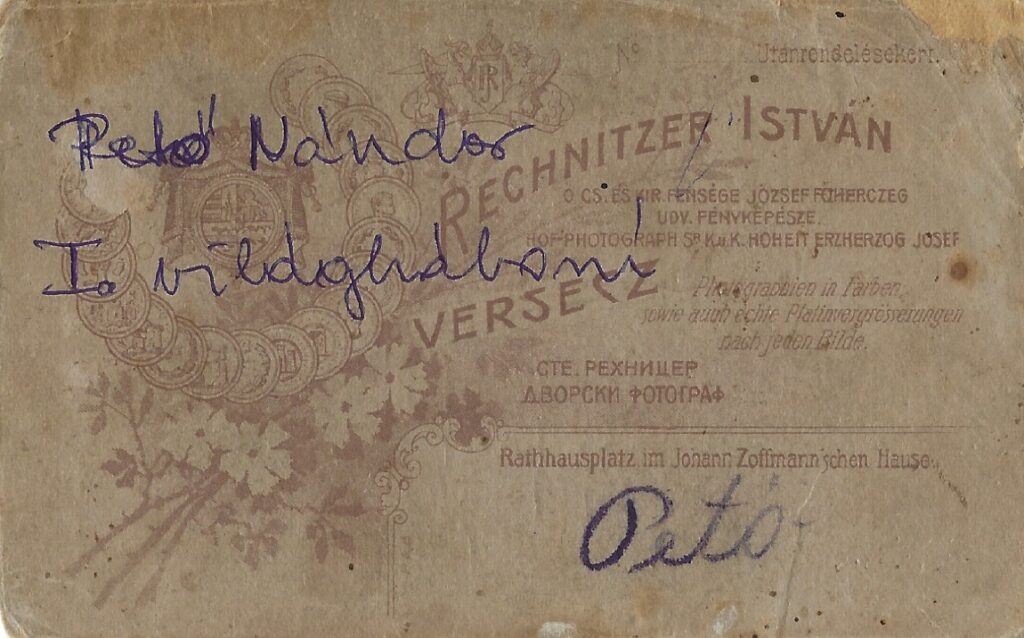 No Utánrendelésekért.
JR
Pető Nándor
RECHNITZER ISTVÁN
Ő CS. ÉS KIR. FENSÉGE JÓZSEF FŐHERCZEG
UDV. FÉNYKÉPÉSZE.
HOF-PHOTOGRAPH Sr K. u. K. HOHEIT ERZHERZOG JOSEF
I. világháború
VERSECZ
Photographien in Farben,
sowie auch echte Platinvergrösserungen
nach jedem Bilde.
СТЕ. РЕХНИЦЕР
ДВОРСКИ ФОТОГРАФ
Rathhausplatz im Johann Zoffmann'schen Hause.
Pető